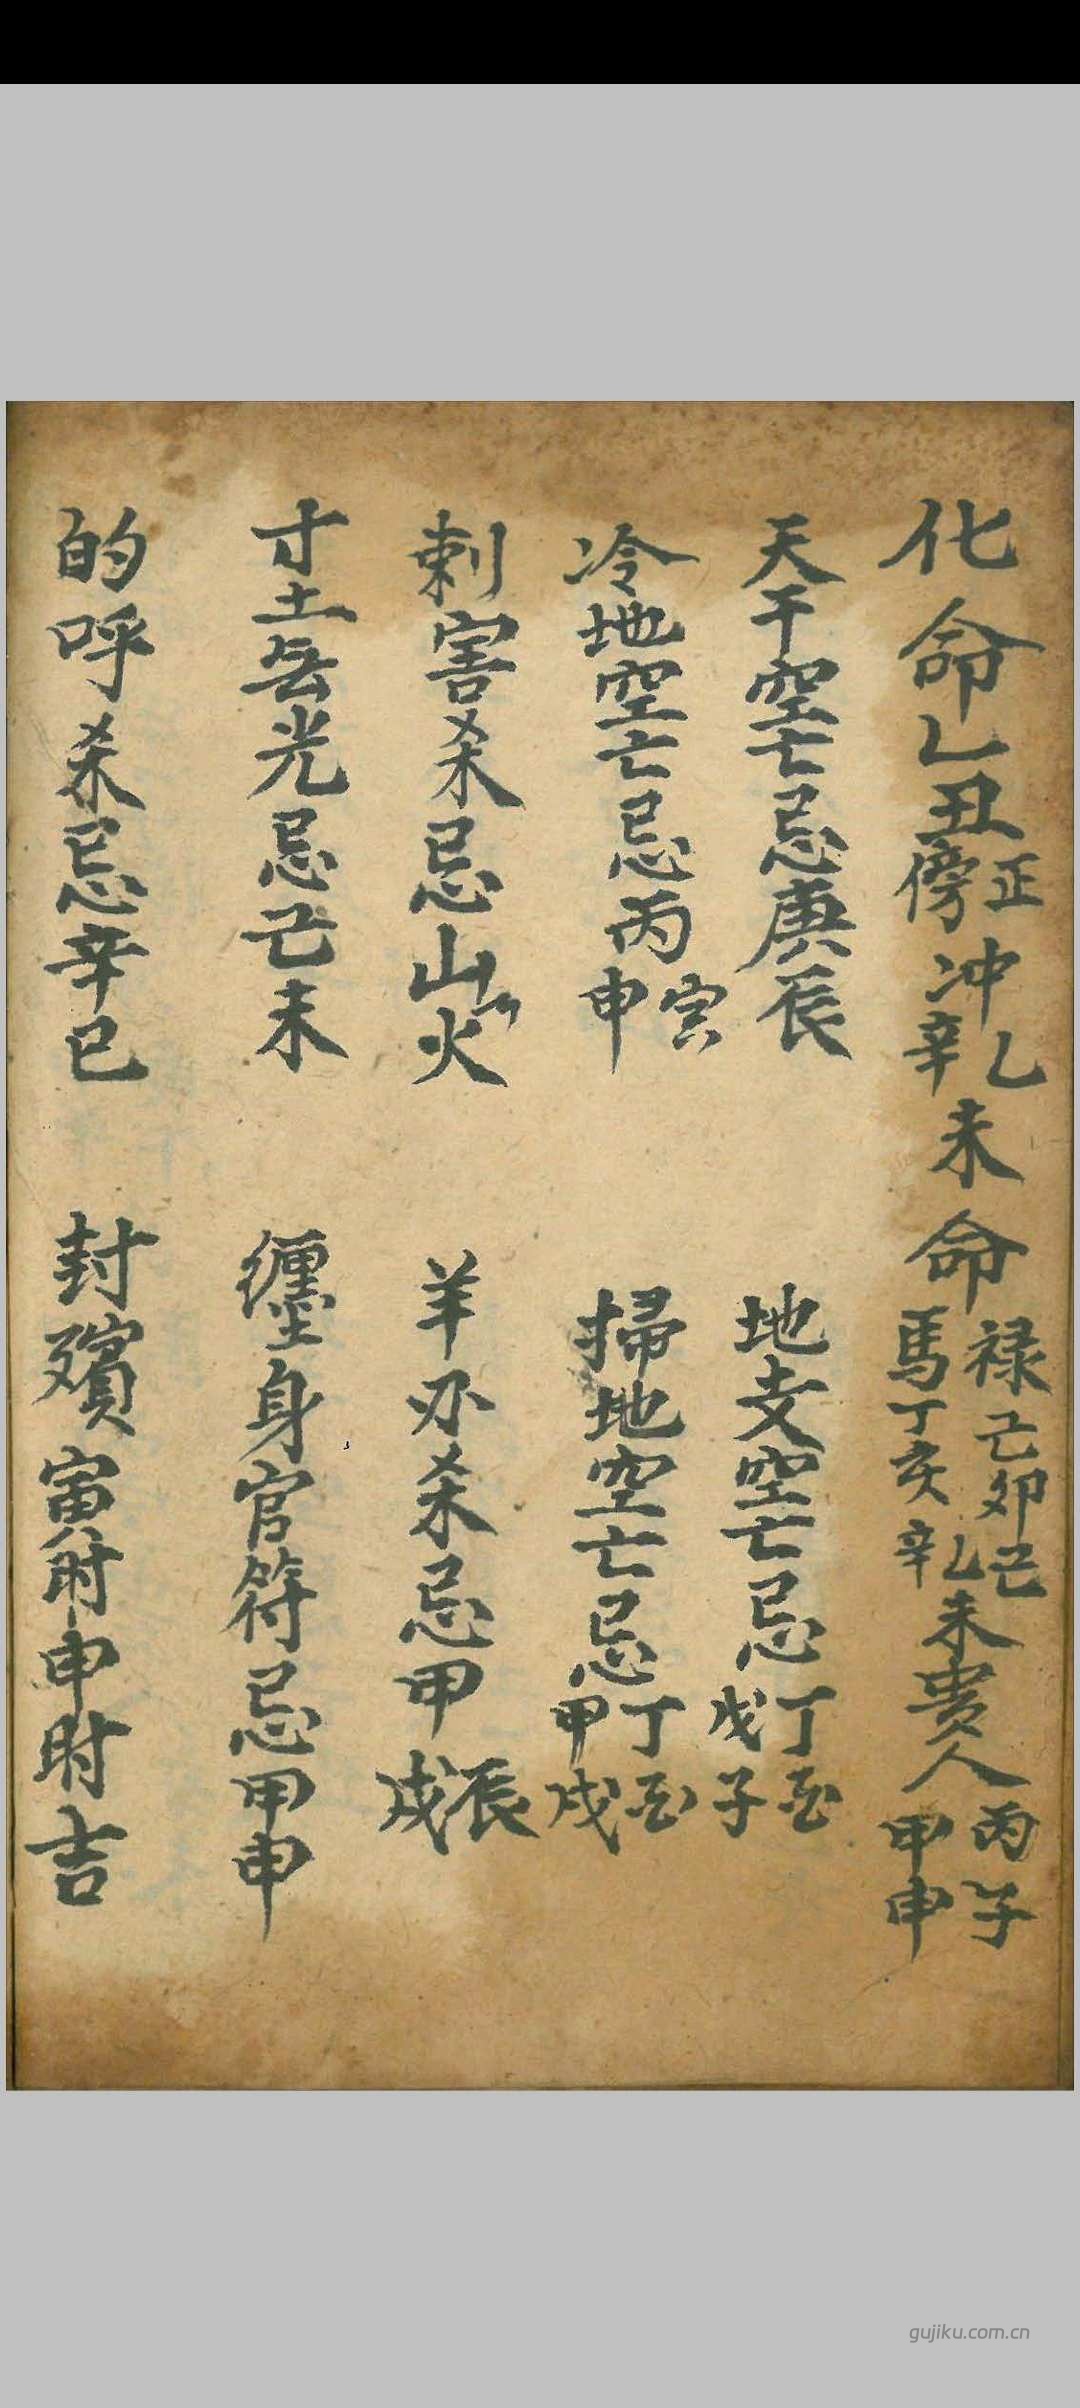 化命乙丑正傍冲乙辛未命禄己卯己馬丁亥乙辛未贵人丙子甲申
天干空亡忌庚辰
地支空亡忌丁戊子
冷地空亡忌丙寅申
掃地空亡忌丁甲戌
刺害杀忌山火
羊刃杀忌甲辰戌
寸土無光忌己未
缠身官符忌甲申
的呼杀忌辛巳
封殯寅時申時吉
gujiku.com.cn